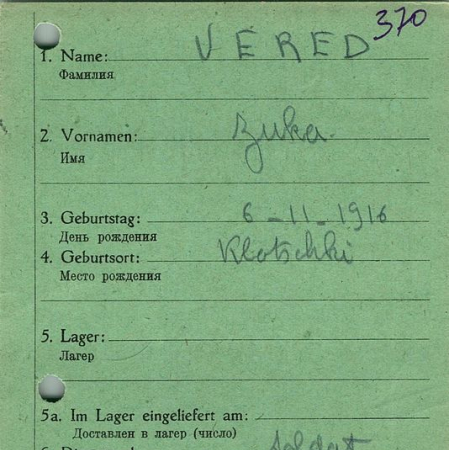 370
1. Name: VERED
Фамилия
2. Vornamen: Zuka
Имя
3. Geburtstag: 6-11-1916
День рождения
4. Geburtsort: Klotschki
Место рождения
5. Lager:
Лагерь
5a. Im Lager eingeliefert am:
Доставлен в лагерь (число)
Soldat